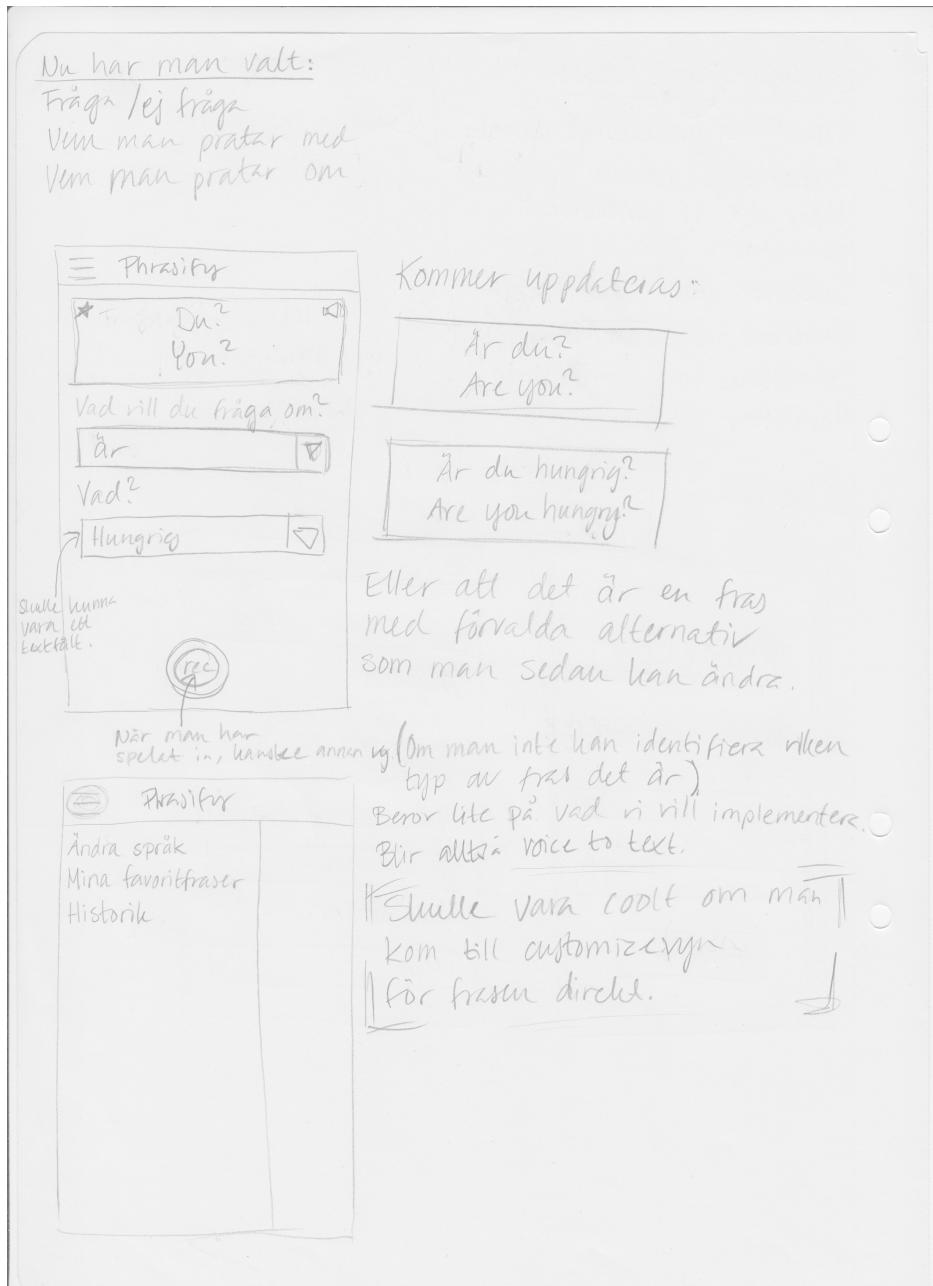 Nu har man valt:
Fråga / ej fråga
Vem man pratar med
Vem man pratar om
Phrasify
Du?
You?
Vad vill du fråga om?
är
Vad?
Hungrig
Skulle kunna
vara ett
textfält.
rec
När man har
spelat in, kanske annan vy
Kommer uppdateras:
Är du?
Are you?
Är du hungrig?
Are you hungry?
Eller att det är en fras
med förvalda alternativ
som man sedan kan ändra.
(Om man inte kan identifiera vilken
typ av fras det är)
Beror lite på vad vi vill implementera.
Blir alltså voice to text.
Skulle vara coolt om man
kom till customizevyn
för frasen direkt.
Phrasify
Ändra språk
Mina favoritfraser
Historik